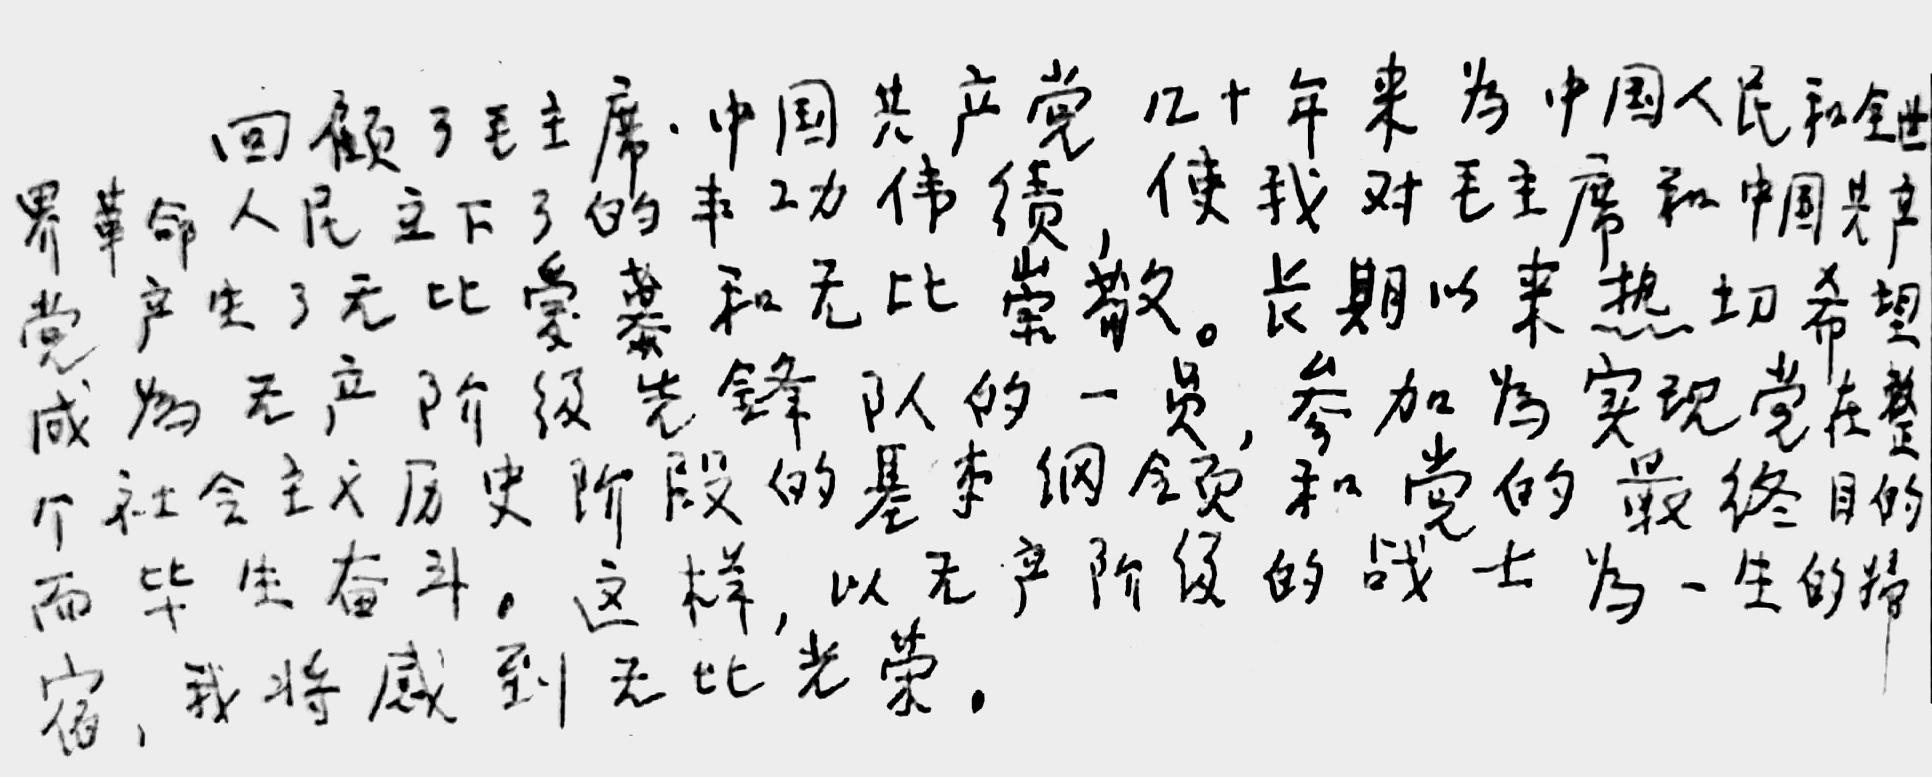 回顾了毛主席·中国共产党几十年来为中国人民和全世
界革命人民立下了的丰功伟绩,使我对毛主席和中国共产
党产生了无比爱慕和无比崇敬。长期以来热切希望
成为无产阶级先锋队的一员,参加为实现党在整
个社会主义历史阶段的基本纲领和党的最终目的
而毕生奋斗。这样,以无产阶级的战士为一生的归
宿,我将感到无比光荣。